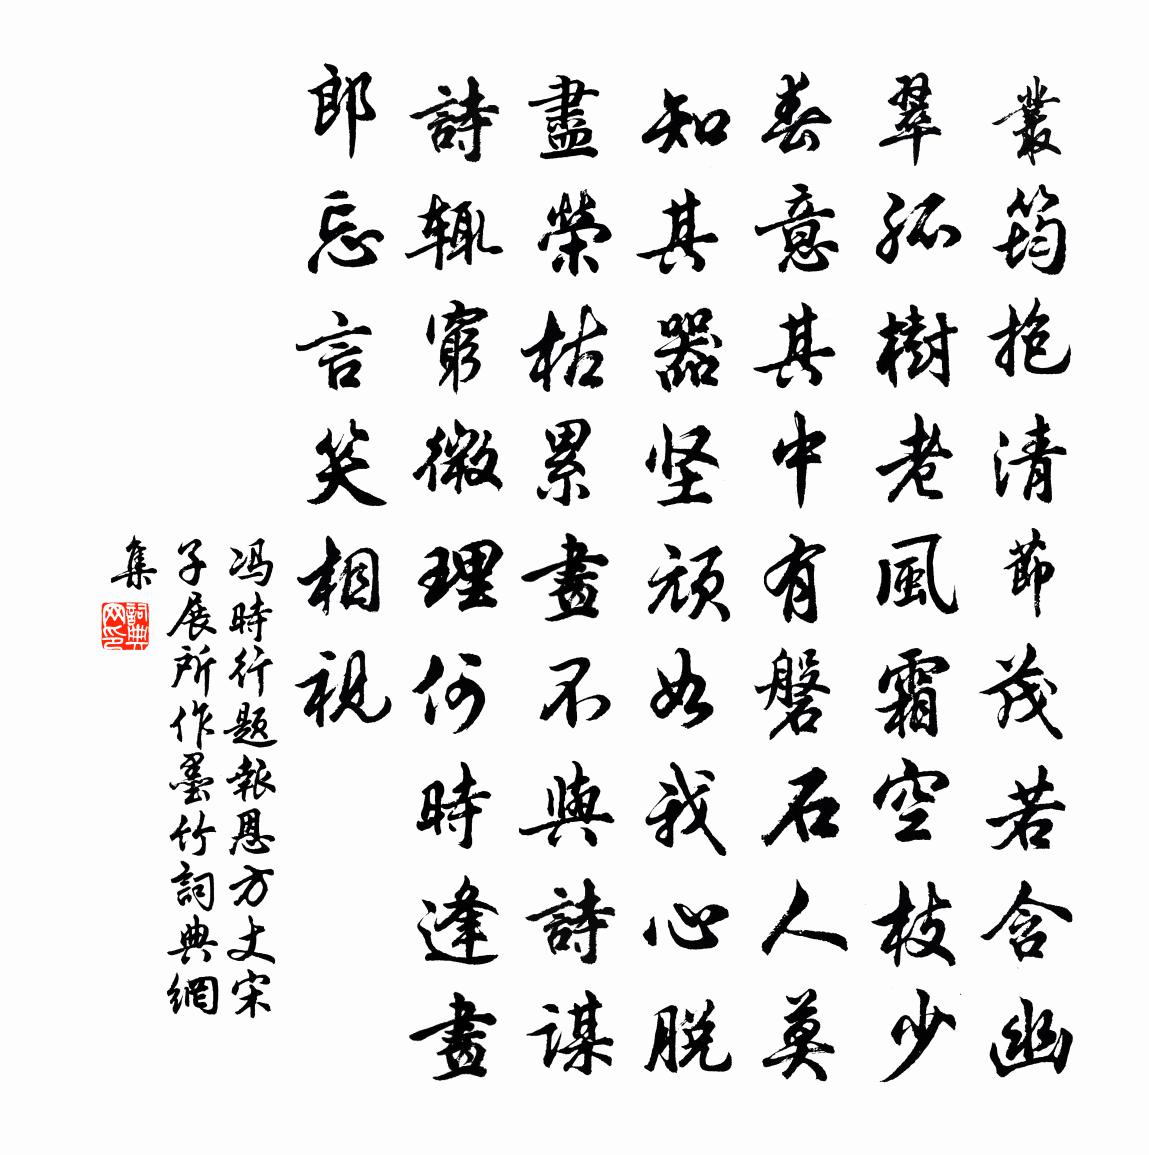 叢筠抱清節茂若含幽
翠孤樹老風霜空枝少
春意其中有磐石人莫
知其器坚頑如我心脱
盡榮枯累畫不與詩謀
詩辄窮微理何時逢畫
郎忘言笑相視
冯時行题報恩方丈宋
子展所作墨竹詞典網
集
詞典网印